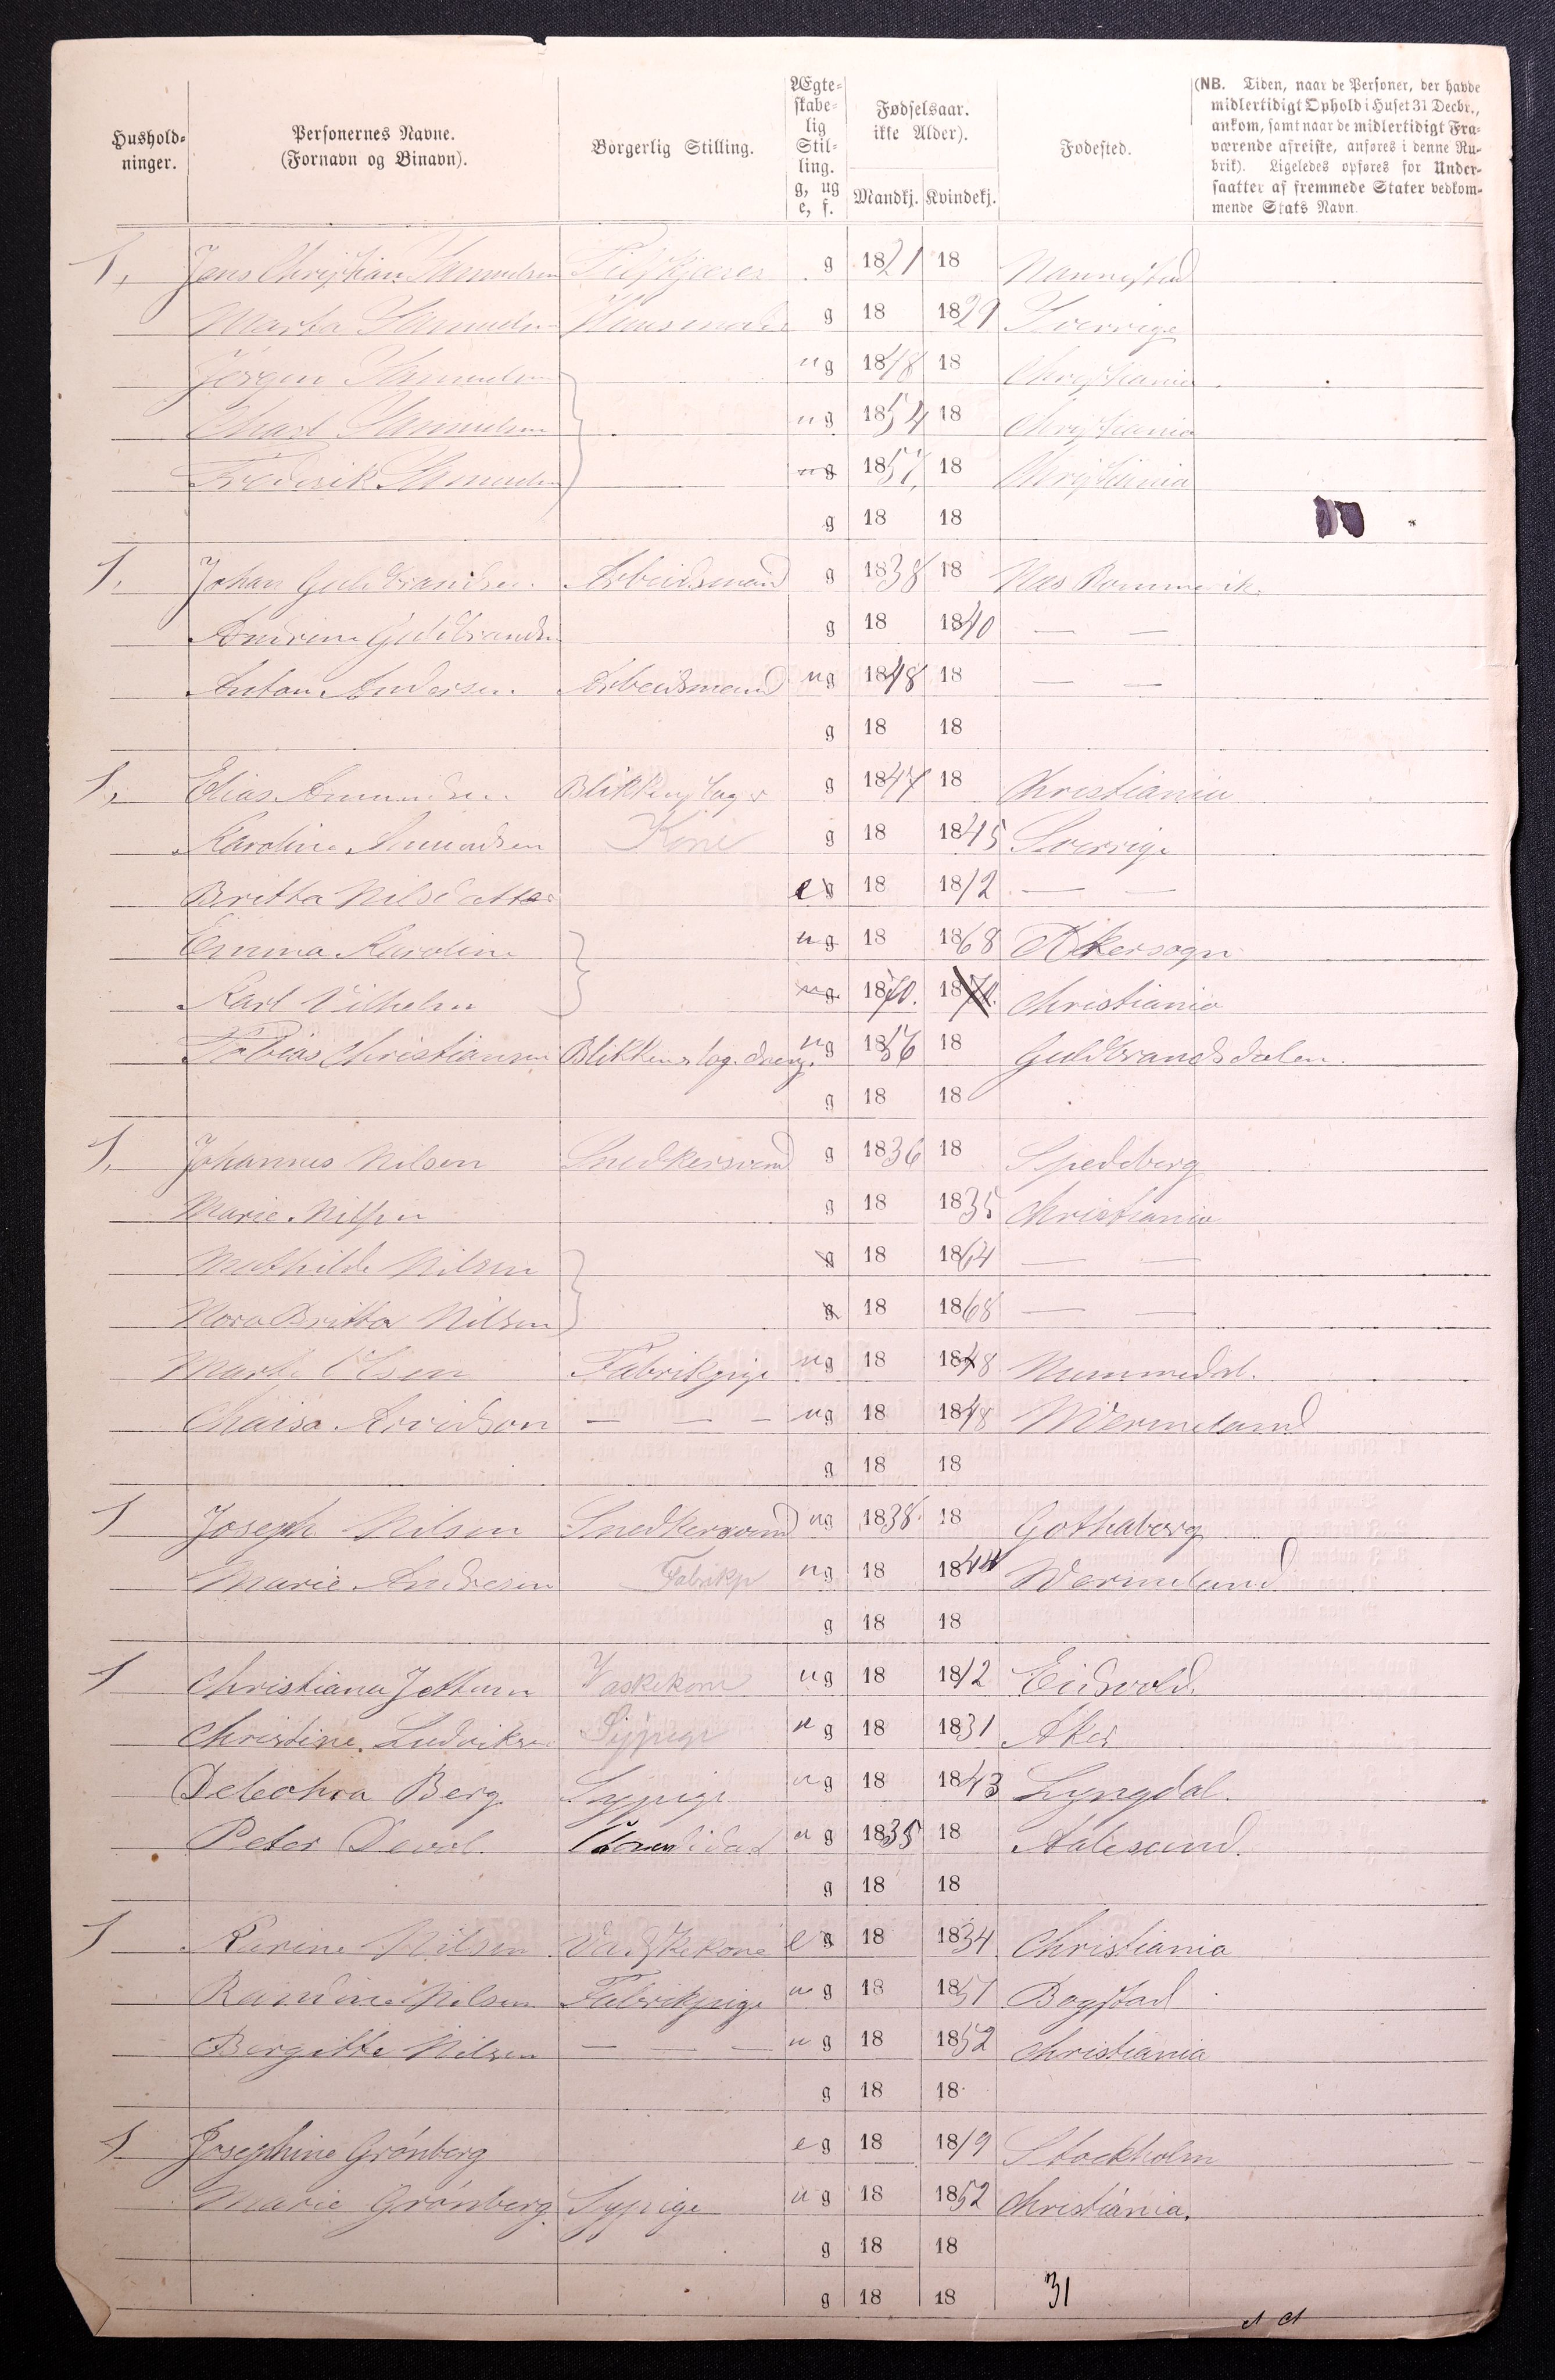 Hushold-
ninger.
Personernes Navne.
(Fornavn og Binavn).
Borgerlig Stilling.
Ægte-
skabe-
lig
Stil-
ling.
g, ug
e, f.
Fødselsaar.
ikke Alder).
Mandkj. Kvindekj.
Fødested.
(NB. Tiden, naar de Personer, der havde
midlertidigt Ophold i Huset 31 Decbr.,
ankom, samt naar de midlertidigt Fra-
værende afreiste, anføres i denne Ru-
brik). Ligeledes opføres for Under-
saatter af fremmede Stater vedkom-
mende Stats Navn.
1, Jens Christian Samuelsen g 1821 18 Nannestad
Marta Samuelsen g 18 1829 Sverrige
Jørgen Samuelsen ug 1848 18 Christiania
Samuelsen ug 1854 18 Christiania
Frederik Samuelsen ug 1857 18 Christiania
g 18 18
1. Johan Guldbrandsen Arbeidsmand g 1838 18 Næs Rommerik.
Andrine Guldbrandsen g 18 1840 — —
Anton Andersen Arbeidsmand ug 1848 18 — —
g 18 18
1, Elias Amundsen Blikkenslager g 1847 18 Christiania
Karoline Amundsen Kone g 18 1845 Sverrige
Britta Nilsdatter e g 18 1812 — —
Emma Karoline ug 18 1868 Akersogn
Karl Vilhelm ug 1870. 1870. Christiania
Tobias Christiansen Blikkenslag. dreng. ug 1856 18 Guldbrandsdalen.
g 18 18
1, Johannes Nilsen Snedkersvend g 1836 18 Spedeberg
Marie Nilsen g 18 1835 Christiania
Mathilde Nilsen g 18 1864 — —
Nora Britta Nilsen g 18 1868 — —
Marthe Olsen Fabrikpige ug 18 1848 Nummedal.
Chaisa Arvidson — — — ug 18 1848 Wermeland
g 18 18
1 Joseph Nilsen Snedkersvend ug 1838. 18 Gothaborg
Marie Andresen Fabrikp ug 18 1844 Wermeland
g 18 18
1 Christiana Vaskekone ug 18 1812 Eidsvold.
Christine Ludviksen Sypige ug 18 1831 Aker
Debohra Berg Sypige ug 18 1843 Lyngdal.
Peter ug 1835 18 Aalesund.
g 18 18
1 Karine Nilsen Vaskekone e g 18 1834 Christiania
Nilsen Fabrikpige ug 18 1851 Bogstad
Bergitte Nilsen — — — ug 18 1852 Christiania
g 18 18
1 Josephine Grønberg e g 18 1819 Stockholm
Marie Grønberg. Sypige ug 18 1852 Christiania.
g 18 18
g 18 18 31